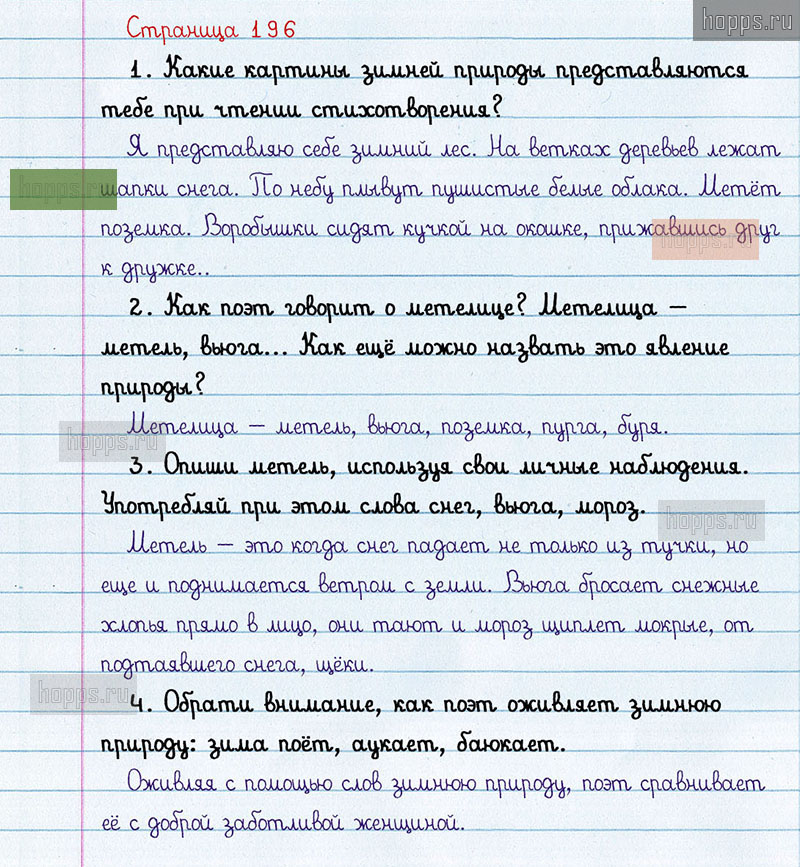 hopps.ru
Страница 196
1. Какие картины зимней природы представляются
тебе при чтении стихотворения?
Я представляю себе зимний лес. На ветках деревьев лежат
hopps.ru
шапки снега. По небу плывут пушистые белые облака. Метёт
поземка. Воробышки сидят кучкой на окошке, прижавшись друг
hopps.ru
к дружке..
2. Как поэт говорит о метелице? Метелица –
метель, вьюга... Как ещё можно назвать это явление
природы?
Метелица – метель, вьюга, поземка, пурга, буря.
hopps.ru
3. Опиши метель, используя свои личные наблюдения.
Употребляй при этом слова снег, вьюга, мороз.
hopps.ru
Метель – это когда снег падает не только из тучки, но
еще и поднимается ветром с земли. Вьюга бросает снежные
хлопья прямо в лицо, они тают и мороз щиплет мокрые, от
подтаявшего снега, щёки.
hopps.ru
4. Обрати внимание, как поэт оживляет зимнюю
природу: зима поёт, аукает, баюкает.
Оживляя с помощью слов зимнюю природу, поэт сравнивает
её с доброй заботливой женщиной.